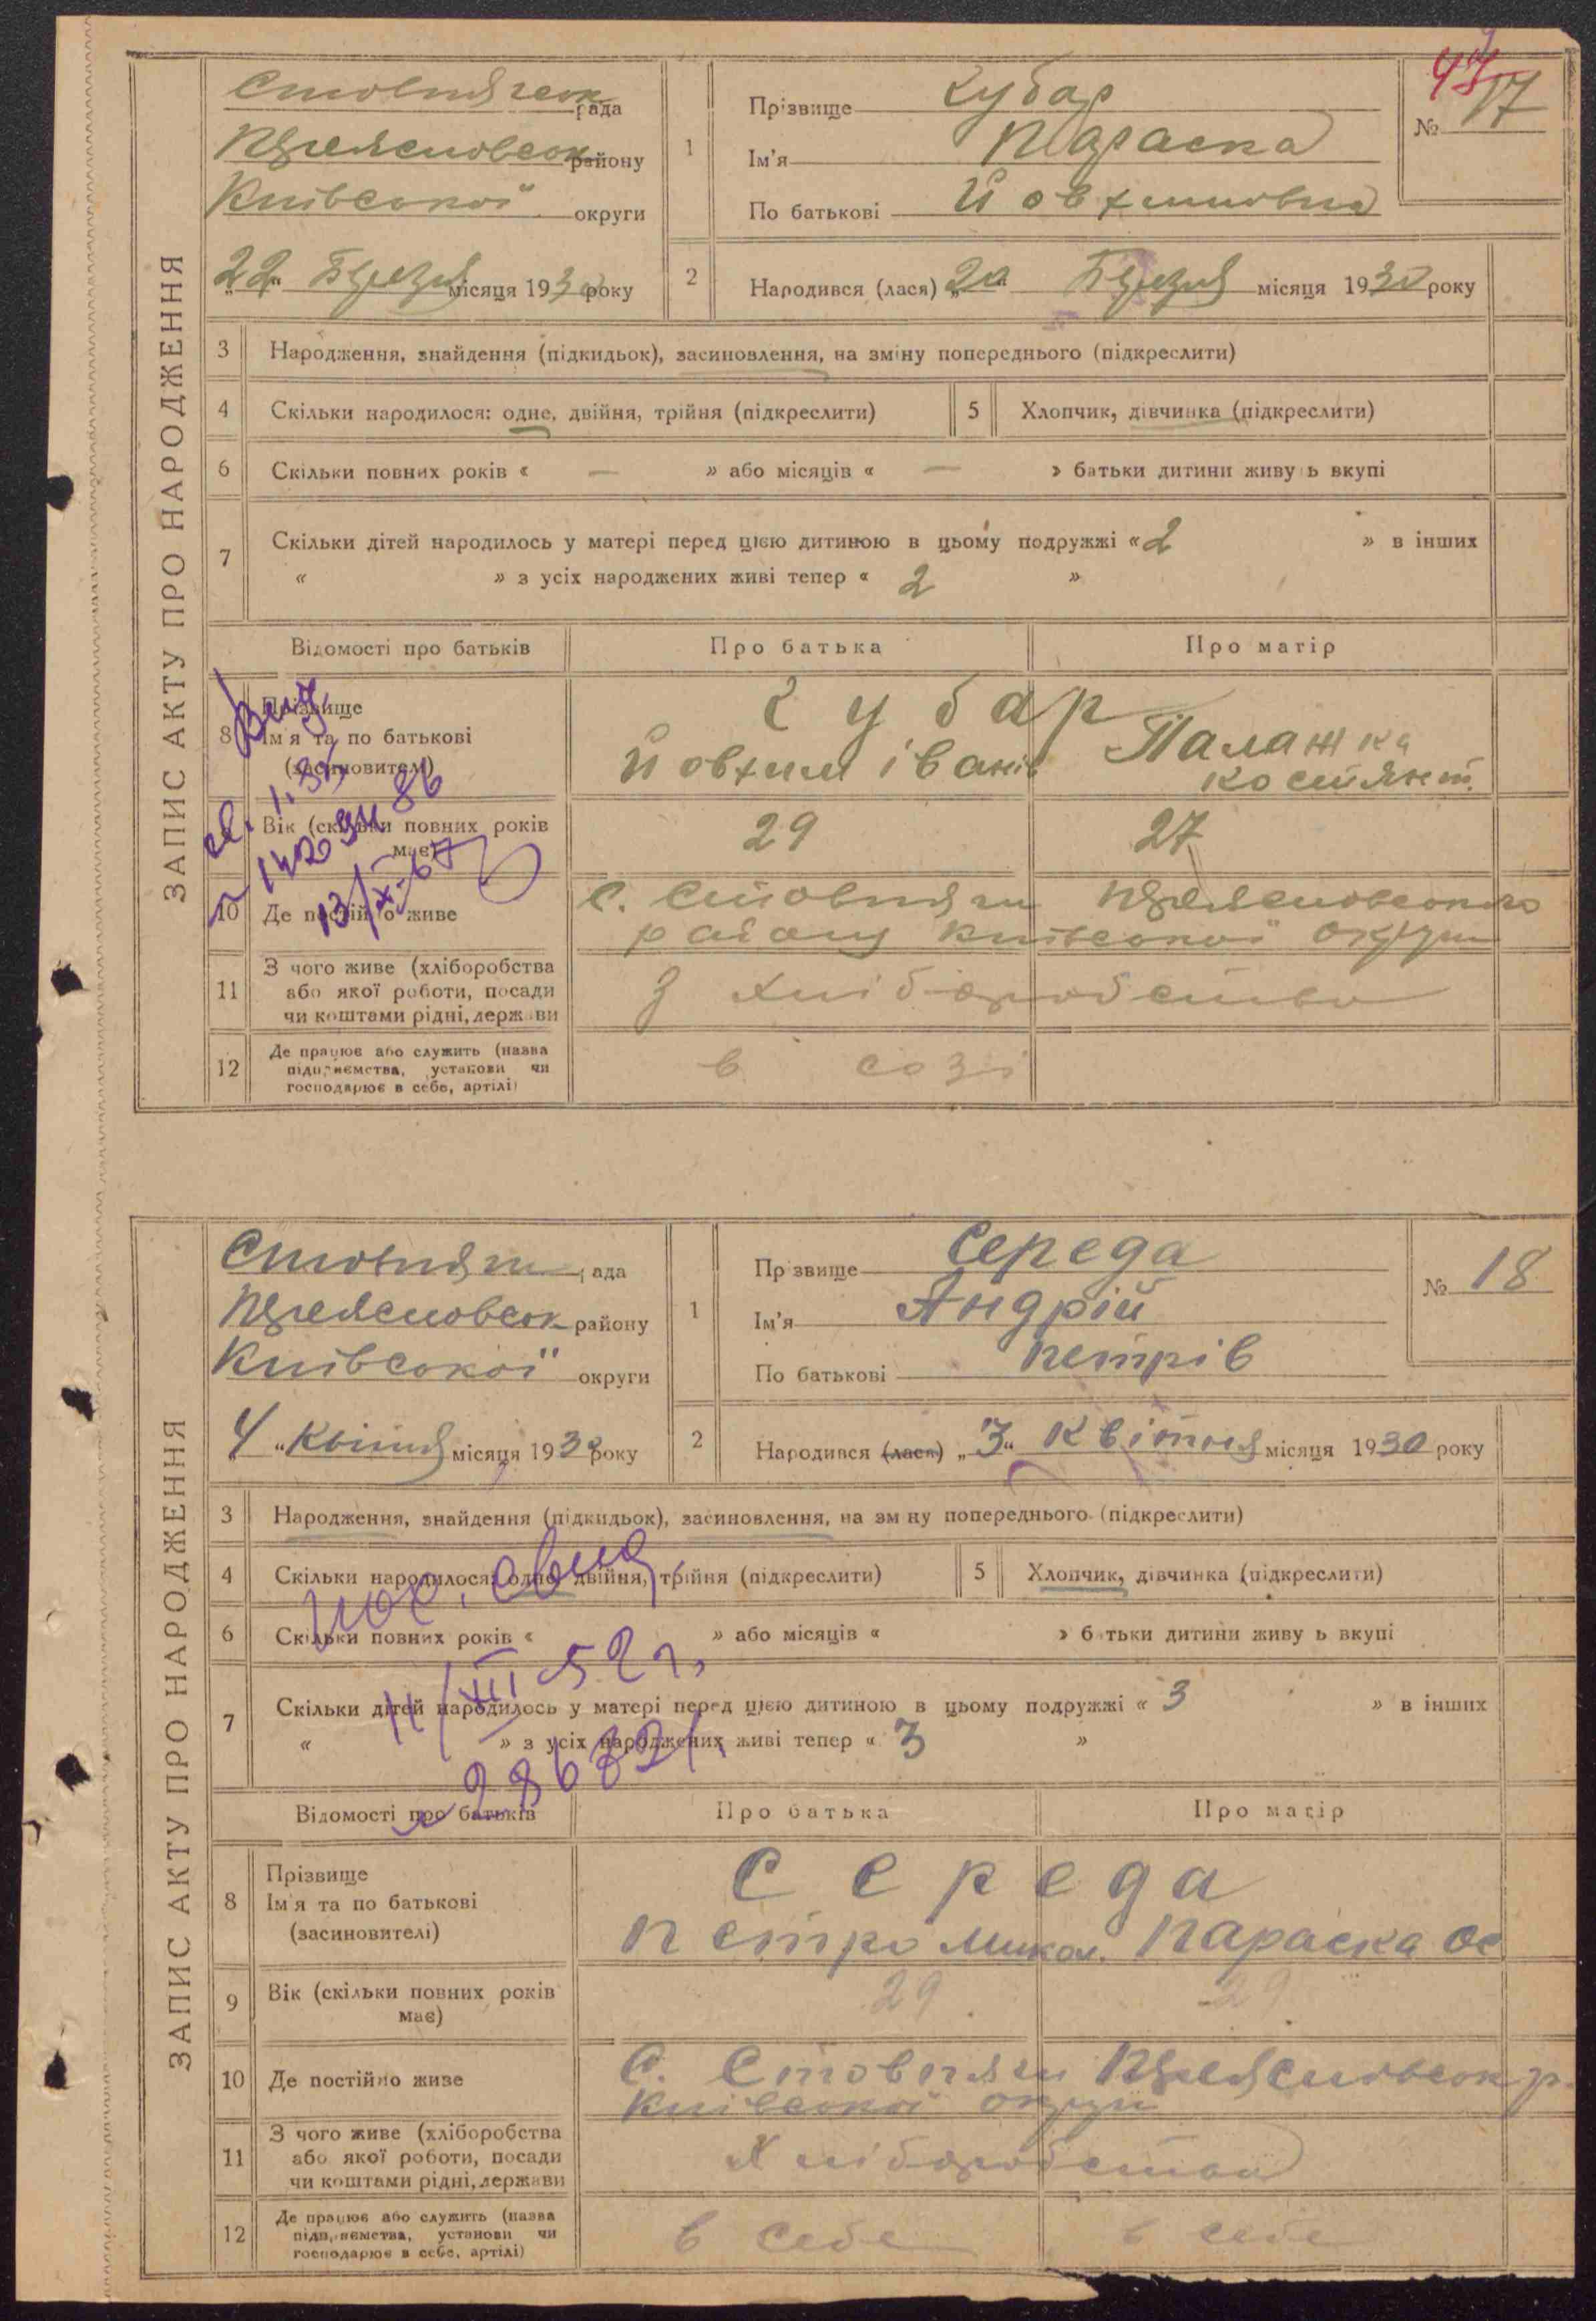 ЗАПИС АКТУ ПРО НАРОДЖЕННЯ
рада
району
Київської округи
22 Березня місяця 1930 року
1
Прізвище
Ім'я Параска
По батькові Йовхимовна
№ 17
47
2
Народився (лася) „20“ Березня місяця 1930 року
3 Народження, знайдення (підкидьок), засиновлення, на зміну попереднього (підкреслити)
4 Скільки народилося: одне, двійня, трійня (підкреслити) 5 Хлопчик, дівчинка (підкреслити)
6 Скільки повних років « — » або місяців « — » батьки дитини живуть вкупі
7 Скільки дітей народилось у матері перед цією дитиною в цьому подружжі « 2 » в інших
« » з усіх народжених живі тепер « 2 »
Відомості про батьків Про батька Про матір
8 Прізвище
Ім'я та по батькові Йовхим Іванів Палажка Костянт.
(засиновителі)
Вік (скільки повних років має) 29 27
10 Де постійно живе с. Стовпяги
району Київської округи
11 З чого живе (хліборобства
або якої роботи, посади З хліборобства
чи коштами рідні, держави
12 Де працює або служить (назва
підприємства, установи чи в созі
господарює в себе, артілі)
13/X-67
ЗАПИС АКТУ ПРО НАРОДЖЕННЯ
Стовпяги рада
району
Київської округи
4 “ Квітня місяця 1930 року
1
Прізвище Середа
Ім'я Андрій
По батькові Петрів
№ 18
2
Народився (лася) „3“ Квітня місяця 1930 року
3 Народження, знайдення (підкидьок), засиновлення, на зміну попереднього (підкреслити)
4 Скільки народилося: одне, двійня, трійня (підкреслити) 5 Хлопчик, дівчинка (підкреслити)
6 Скільки повних років « » або місяців « » батьки дитини живуть вкупі
7 Скільки дітей народилось у матері перед цією дитиною в цьому подружжі « 3 » в інших
« » з усіх народжених живі тепер « 3 »
11/III 52 г.
Відомості про батьків Про батька Про матір
8 Прізвище Середа
Ім'я та по батькові Петро Микол. Параска Ос
(засиновителі)
9 Вік (скільки повних років має) 29 29
10 Де постійно живе С. Стовпяги
Київської округи
11 З чого живе (хліборобства
або якої роботи, посади Хліборобства
чи коштами рідні, держави
12 Де працює або служить (назва
підприємства, установи чи в себе в себе
господарює в себе, артілі)